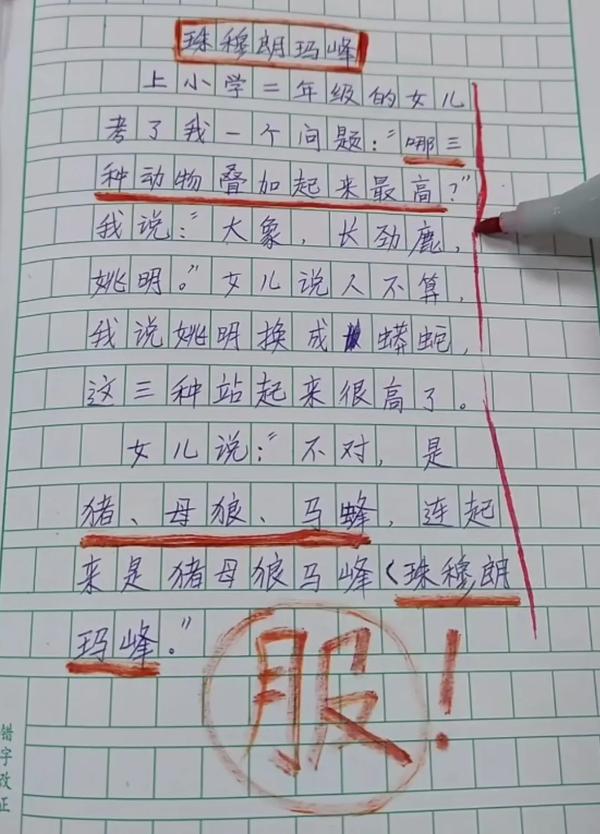 珠穆朗玛峰
上小学二年级的女儿
考了我一个问题：“哪三
种动物叠加起来最高？”
我说：“大象，长劲鹿，
姚明。”女儿说人不算，
我说姚明换成蟒蛇，
这三种站起来很高了。
女儿说：“不对，是
猪、母狼、马蜂，连起
来是猪母狼马峰（珠穆朗
玛峰。”
服！
错字改正